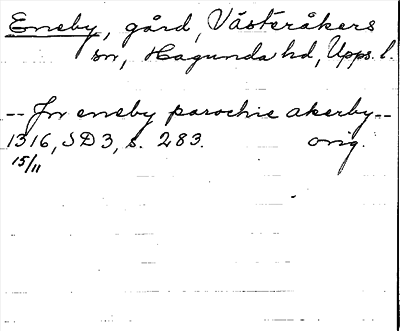 Eneby, gård, Västeråkers
sn, Hagunda hd, Upps. l.
-- Jn eneby parochie akerby --
1316, SD 3, s. 283. orig.
15/11